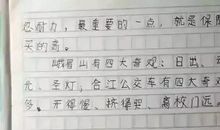 忍耐力，最重要的一点，就是保障
买的奇。
峨眉山有四大奇观：日出、云
光、圣灯，合江公交车有四大奇观
多。开得慢、挤得要、离校门远